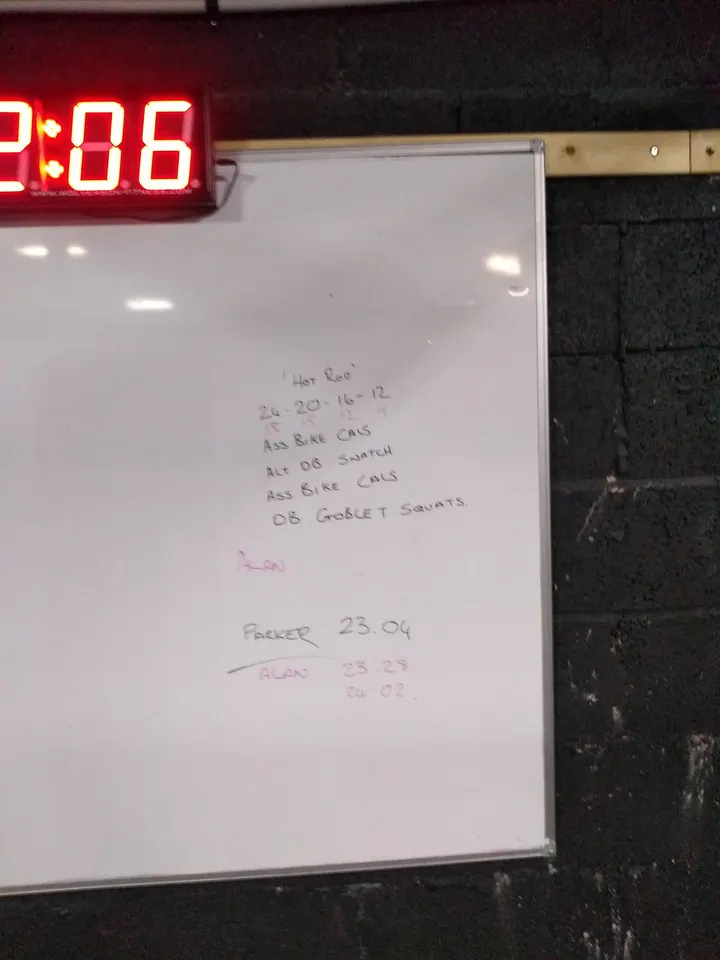 2:06
'Hot Rod'
24-20-16-12
18 15 12 9
ASS BIKE CALS
ALT DB SNATCH
ASS BIKE CALS
DB GOBLET SQUATS.
ALAN
PARKER 23.04
ALAN 23.28
24.02.